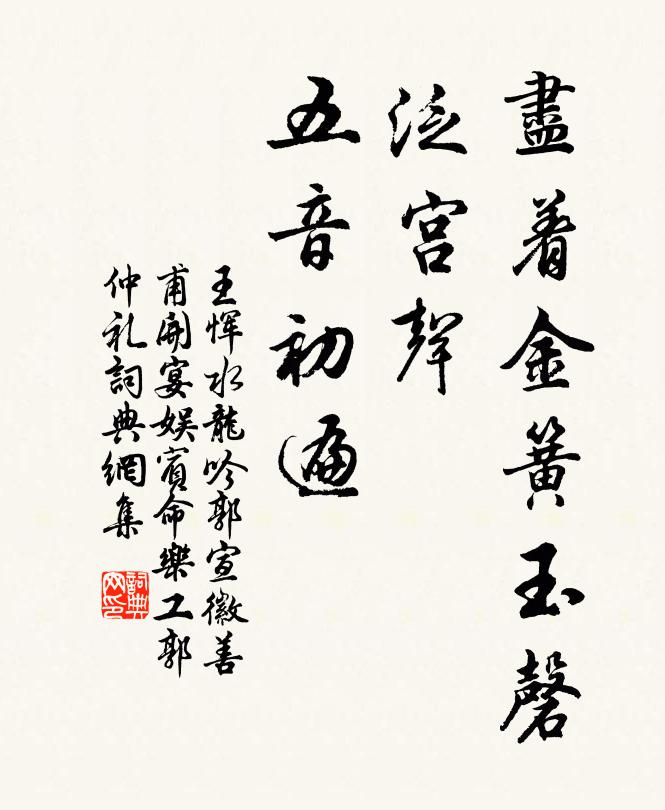 盡着金簧玉磬
泛宫聲
五音初遍
王惲水龍吟郭宣徽善
甫開宴娱賓命樂工郭
仲礼詞典網集
詞典网印